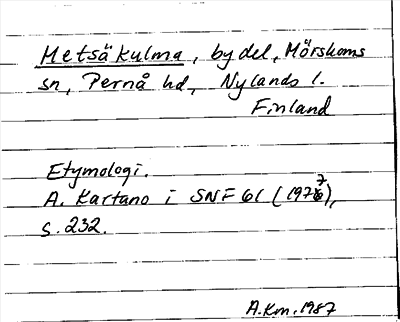 Metsäkulma, by del, Mörskoms
sn, Pernå hd, Nylands l.
Finland
Etymologi.
A. Kartano i SNF 61 (1977),
s. 232.
A.Km. 1987